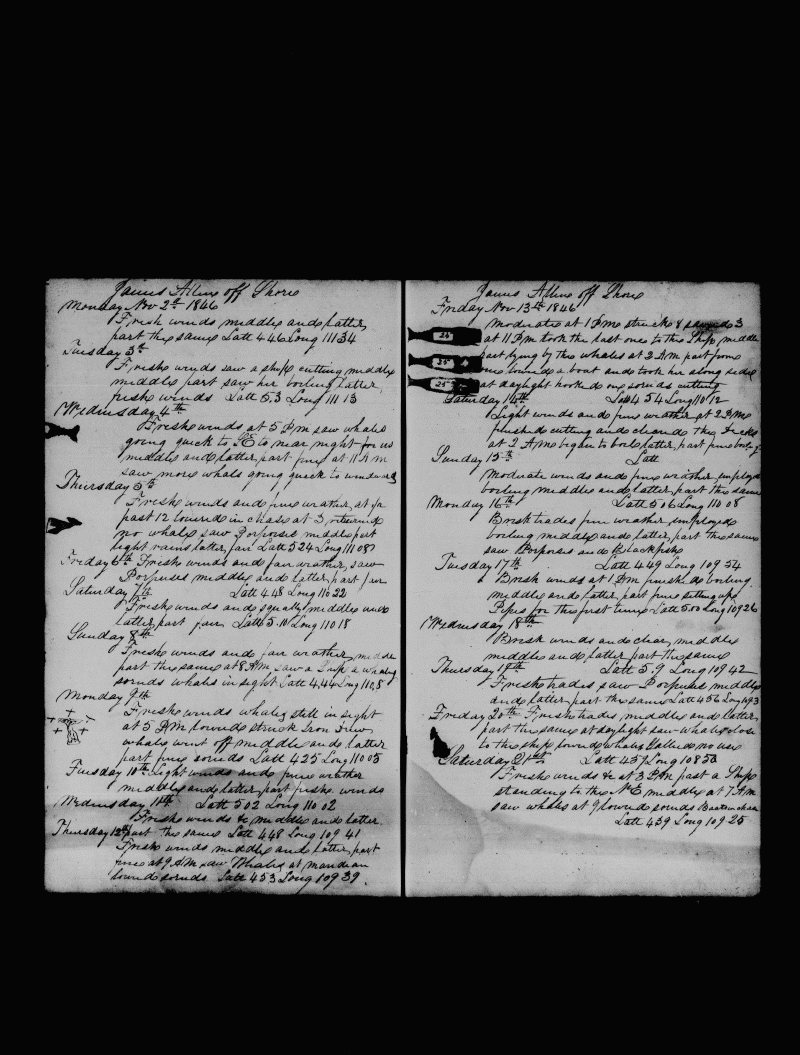 James Allen off Shore
Monday Nov 2d 1846
Fresh winds middle and latter
part the same Latt 4 46 Long 111 34
Tuesday 3d
Fresh winds saw a ship cutting middle
middle part saw her boiling latter
fresh winds Latt 5.3 Long 111 13
Wednesday 4th
Fresh winds at 5 P.M saw whales
going quick to to near night for us
middle and latter part fine at 11 A m
saw more whales going quick to windward
Thursday 5th
Fresh winds and fine weather at
past 12 lowered in chase at 3 returned
no whales saw Porpoises middle part
light rains latter fair Latt 5 24 Long 111 08
Friday 6th Fresh winds and fair weather, saw
Porpoises middle and latter part fine
Saturday 7th Latt 4.48 Long 110 22
Fresh winds and squally middle and
latter part fair Latt 5.10 Long 110 18
Sunday 8th
Fresh winds and fair weather middle
part the same at 8 AM saw a Ship a whaling
sounds whales in sight Latt 4.44 Long 110,5
Monday 9th
Fresh winds whales still in sight
at 5 P.M lowered struck Iron
whales went off middle and latter
part fine sounds Latt 4 25 Long 110 05
Tuesday 10th Light winds and fine weather
middle and latter part fresh winds
Wednesday 11th Latt 5 02 Long 110 02
Fresh winds & middle and latter
Thursday 12th part the same Latt 4 48 Long 109 41
Fresh winds middle and latter part
fine at 9 A.M saw Whales at
lowered sounds Latt 4 53 Long 109 39
James Allen off Shore
Friday Nov 13th 1846
Moderate at 1 P.M struck & saved 3
at 11 P.M took the last one to the Ship, middle
part lying by the whales at 2 A.M part from
one lowered a boat and took her along side
at daylight hooked on sounds cutting
Saturday 14th Latt 4 54 Long 110 12
Light winds and fine weather at 2 P.M
finished cutting and cleared the Decks
at 2 A M began to boil latter part fine
Sunday 15th Latt
Moderate winds and fine weather employed
boiling middle and latter part the same
Monday 16th Latt 5 06 Long 110 08
Brisk trades fine weather employed
boiling middle and latter part the same
saw Porpoises and Blackfish
Tuesday 17th Latt 4 49 Long 109 54
Brisk winds at 1 P.M finished boiling
middle and latter part fine setting up
Pipes for the first time Latt 5.00 Long 109 26
Wednesday 18th
Brisk winds and clear middle
middle and latter part the same
Thursday 19th Latt 5.9 Long 109 42
Fresh trades saw Porpoises middle
and latter part the same Latt 4 56 Long 109 3
Friday 20th Fresh trades middle and latter
part the same at daylight saw whales close
to the ship lowered whales Gallied no use
Saturday 21st Latt 4 57 Long 108 50
Fresh winds & at 3 P.M past a Ship
standing to the NE middle at 7 AM
saw whales at 9 lowered sounds Boats in chase
Latt 4 39 Long 109 25
25
35
25